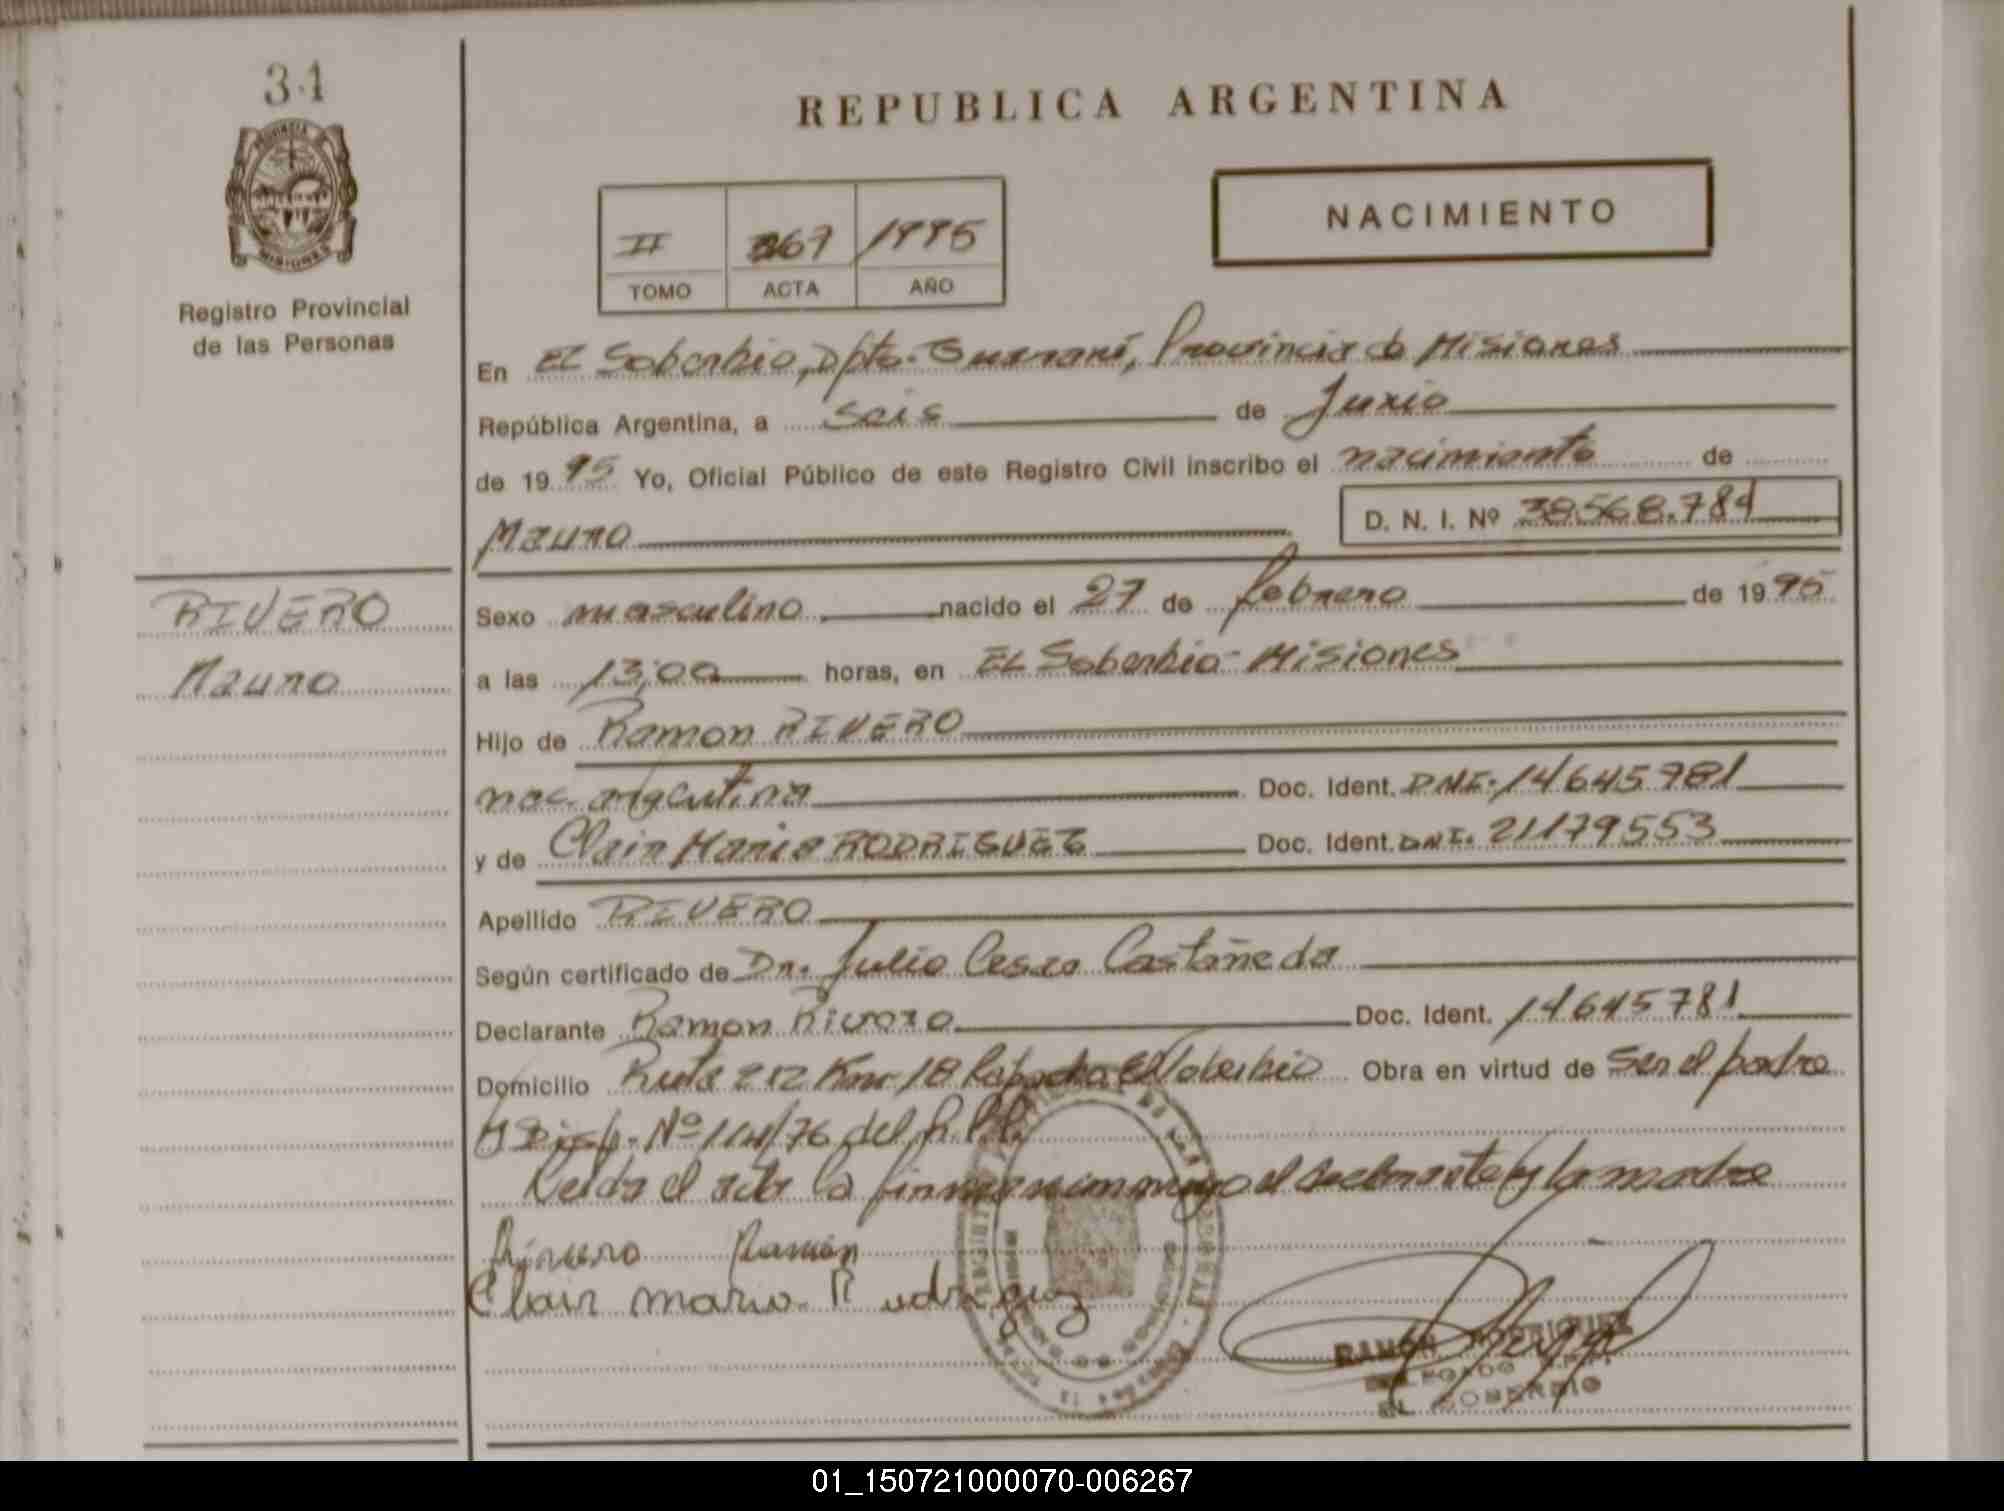 31
PROVINCIA
MISIONES
Registro Provincial
de las Personas
REPUBLICA ARGENTINA
NACIMIENTO
II 267 1995
TOMO ACTA AÑO
En El Soberbio, Dpto. Guaraní, Provincia de Misiones
República Argentina, a seis de Junio
de 1995 Yo, Oficial Público de este Registro Civil inscribo el nacimiento de
Mauro D. N. I. Nº 38568.784
RIVERO
Mauro
Sexo masculino nacido el 27 de febrero de 1995
a las 13,00 horas, en El Soberbio - Misiones
Hijo de Ramon RIVERO
nac. argentina Doc. Ident. DNI. 14645781
y de Clair Maria RODRIGUEZ Doc. Ident. DNI. 21179553
Apellido RIVERO
Según certificado de Dr. Julio Cesar Castañeda
Declarante Ramon Rivero Doc. Ident. 14645781
Domicilio Ruta 212 Km 18 El Soberbio Obra en virtud de ser el padre
y Disp. Nº 114/76 del R.P.P.
Leida el acta la firman conmigo el declarante y la madre
Rivero Ramón
Clair maria Rodriguez
RAMON RODRIGUEZ
DELEGADO R.P.P.
EL SOBERBIO
01_150721000070-006267